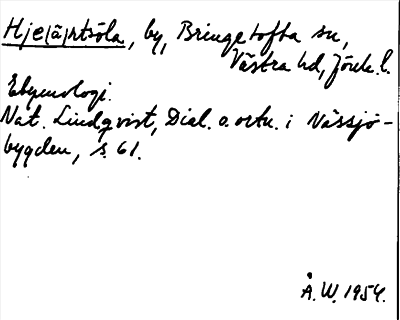 Hje(ä)rtsöla, by, Bringetofta sn,
Västra hd, Jönk. l.
Etymologi.
Nat. Lindqvist, Dial. o. ortn. i Nässjö-
bygden, s. 61.
Å. W. 1954.